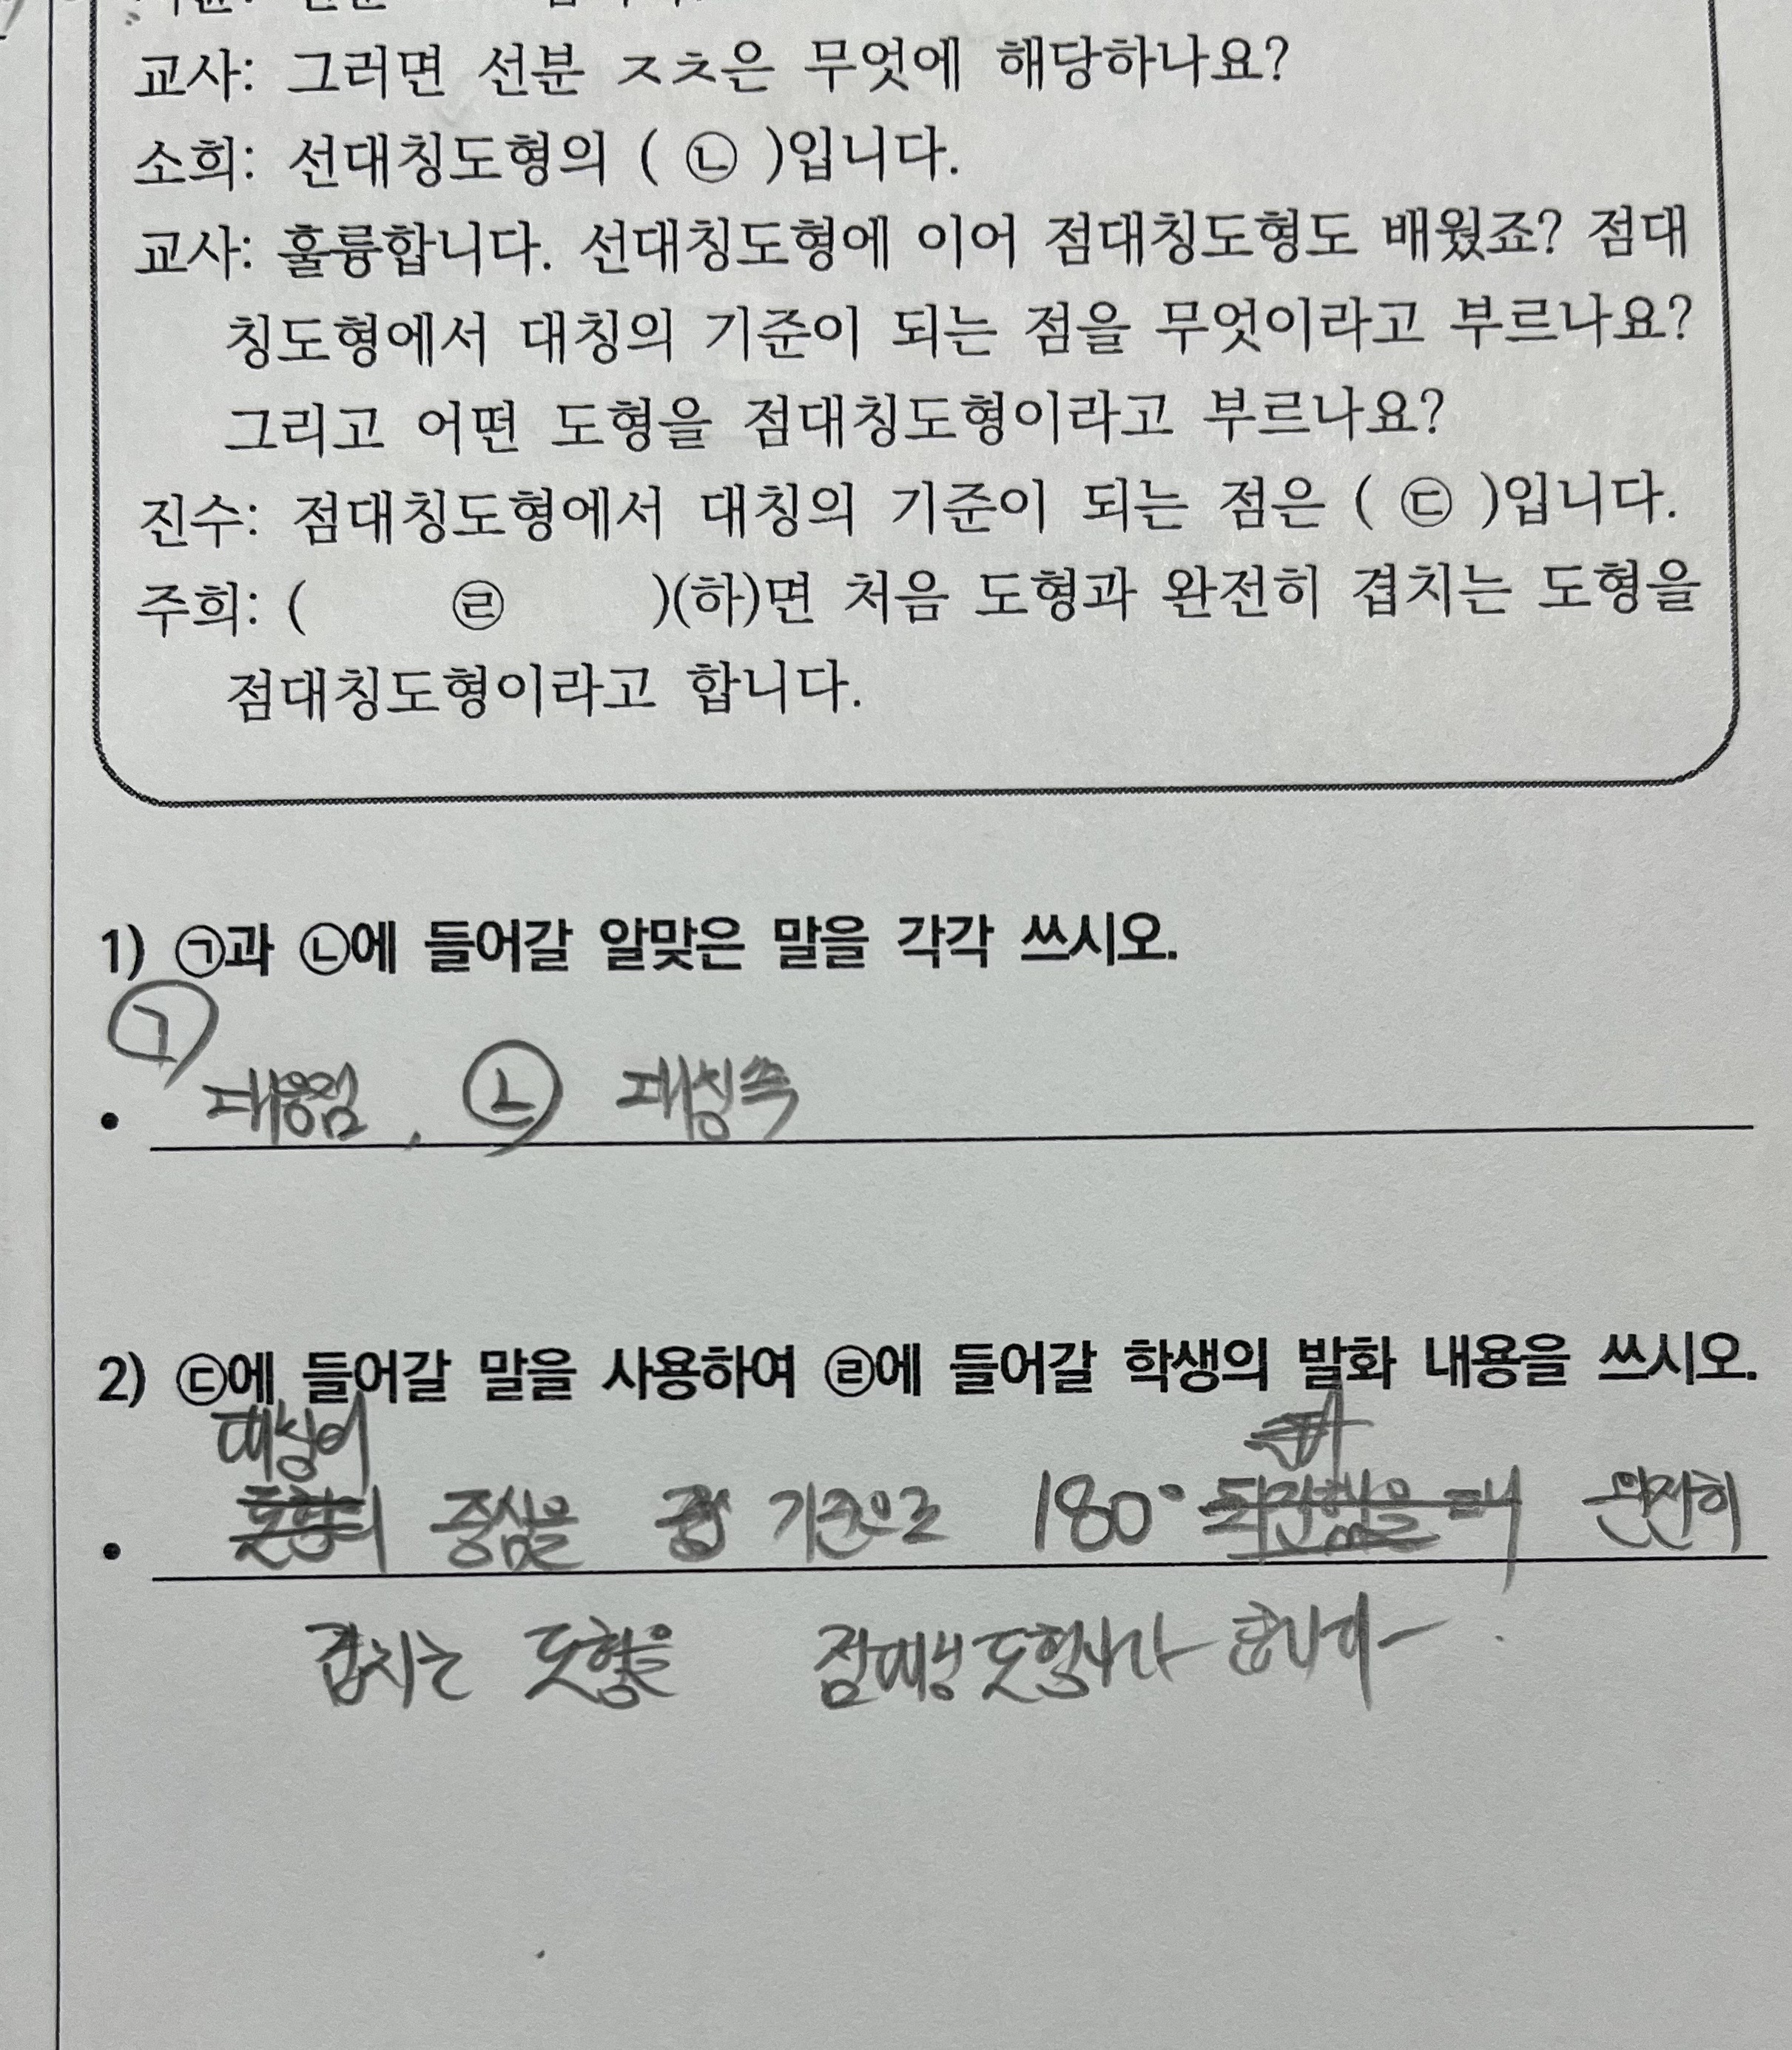 교사: 그러면 선분 ㅈㅊ은 무엇에 해당하나요?
소희: 선대칭도형의 ( ㉡ )입니다.
교사: 훌륭합니다. 선대칭도형에 이어 점대칭도형도 배웠죠? 점대
칭도형에서 대칭의 기준이 되는 점을 무엇이라고 부르나요?
그리고 어떤 도형을 점대칭도형이라고 부르나요?
진수: 점대칭도형에서 대칭의 기준이 되는 점은 ( ㉢ )입니다.
주희: ( ㉣ )(하)면 처음 도형과 완전히 겹치는 도형을
점대칭도형이라고 합니다.
1) ㉠과 ㉡에 들어갈 알맞은 말을 각각 쓰시오.
㉠
• 대응점, ㉡ 대칭축
2) ㉢에 들어갈 말을 사용하여 ㉣에 들어갈 학생의 발화 내용을 쓰시오.
대칭의
• 중심을 기준으로 180° 완전히
겹치는 도형을 점대칭도형이라 합니다.